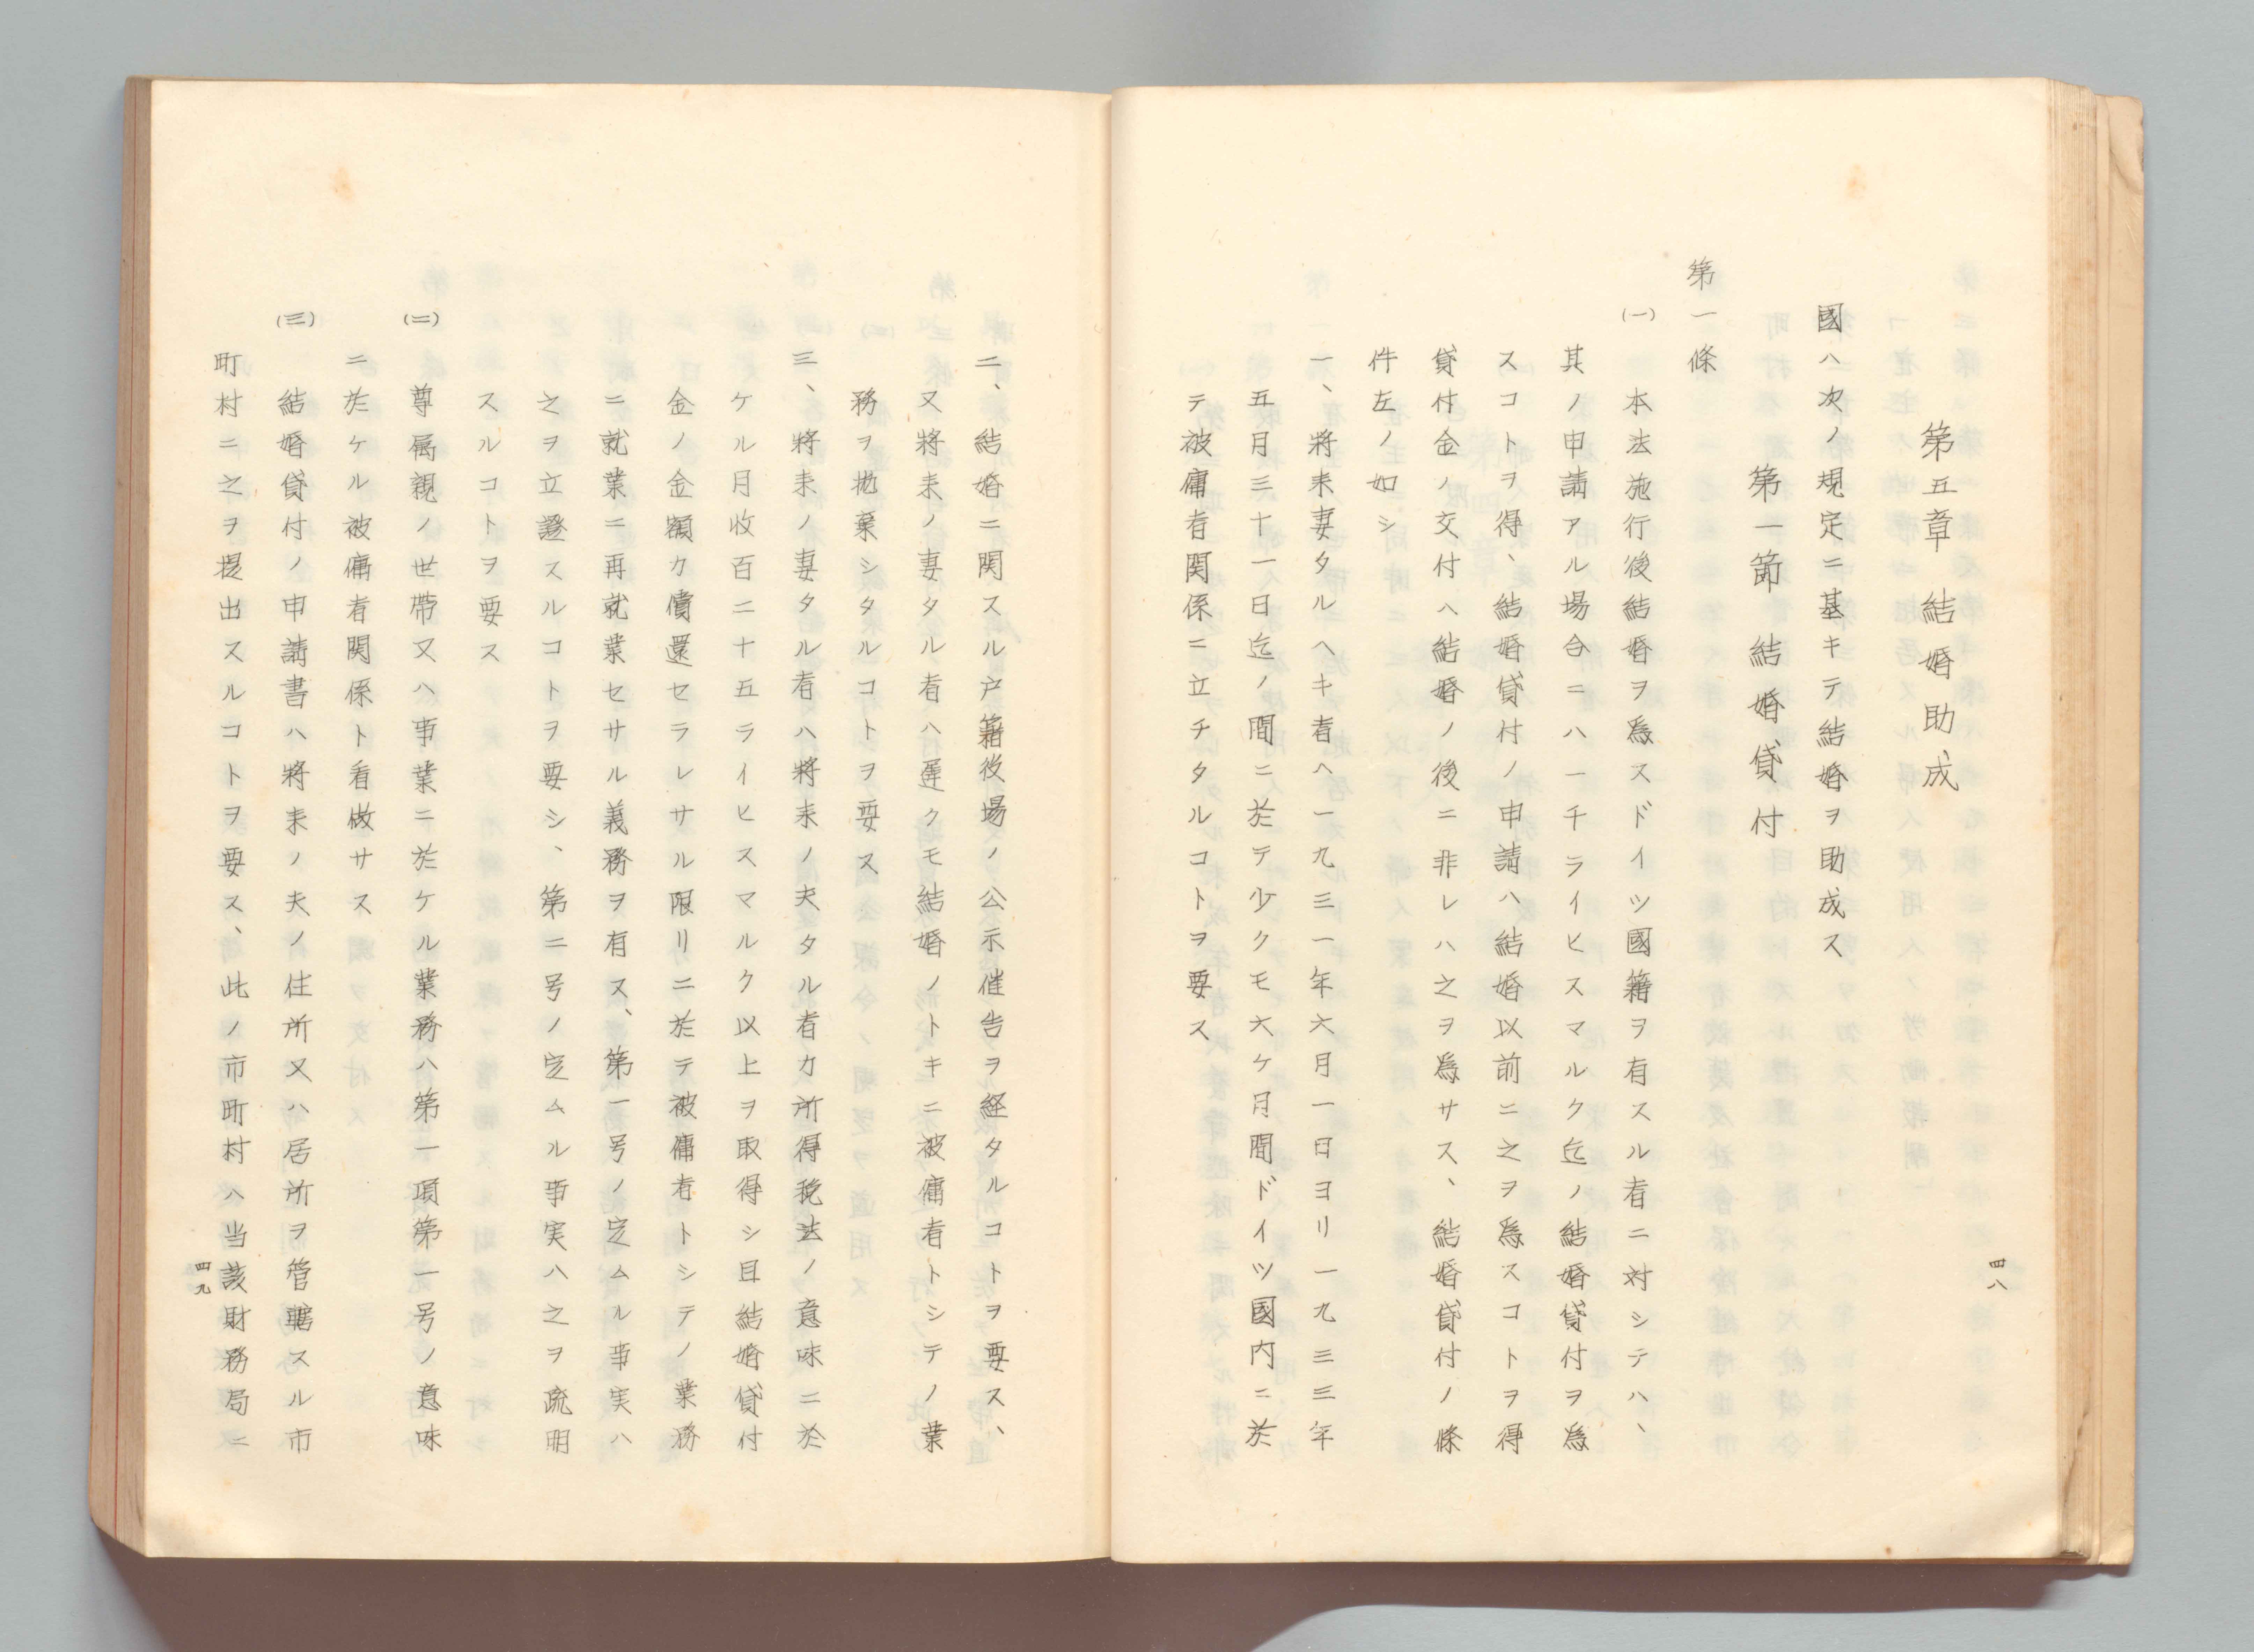 第五章　結婚助成
國ハ次ノ規定ニ基キテ結婚ヲ助成ス
第一節　結婚貸付
第一條
(一)　本法施行後結婚ヲ爲スドイツ國籍ヲ有スル者ニ対シテハ、
其ノ申請アル場合ニハ一千ライヒスマルク迄ノ結婚貸付ヲ爲
スコトヲ得、結婚貸付ノ申請ハ結婚以前ニ之ヲ爲スコトヲ得
貸付金ノ交付ハ結婚ノ後ニ非レハ之ヲ爲サス、結婚貸付ノ條
件左ノ如シ
一、將来妻タルヘキ者ヘ一九三一年六月一日ヨリ一九三三年
五月三十一日迄ノ間ニ於テ少クモ六ケ月間ドイツ國内ニ於
テ被庸者関係ニ立チタルコトヲ要ス
四八
二、結婚ニ関スル戸籍役場ノ公示催告ヲ経タルコトヲ要ス、
又將来ノ妻タル者ハ遅クモ結婚ノトキニ被傭者トシテノ業
務ヲ拋棄シタルコトヲ要ス
三、將来ノ妻タル者ハ將来ノ夫タル者カ所得税法ノ意味ニ於
ケル月收百二十五ライヒスマルク以上ヲ取得シ且結婚貸付
金ノ金額カ償還セラレサル限リニ於テ被傭者トシテノ業務
ニ就業ニ再就業セサル義務ヲ有ス、第一号ノ定ムル事実ハ
之ヲ立證スルコトヲ要シ、第二号ノ定ムル事実ハ之ヲ疏明
スルコトヲ要ス
(二)　尊属親ノ世帶又ハ事業ニ於ケル業務ハ第一項第一号ノ意味
ニ於ケル被傭者関係ト看做サス
(三)　結婚貸付ノ申請書ハ將来ノ夫ノ住所又ハ居所ヲ管轄スル市
町村ニ之ヲ提出スルコトヲ要ス、此ノ市町村ハ当該財務局ニ
四九